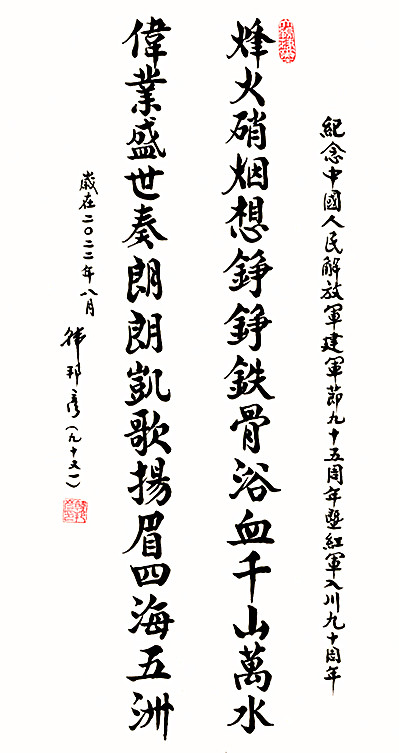 紀念中國人民解放軍建軍節九十五周年暨紅軍入川九十周年
烽火硝烟想錚錚鉄骨浴血千山萬水
偉業盛世奏朗朗凱歌揚眉四海五洲
歲在二〇二二年八月
邦彦(九十又一)